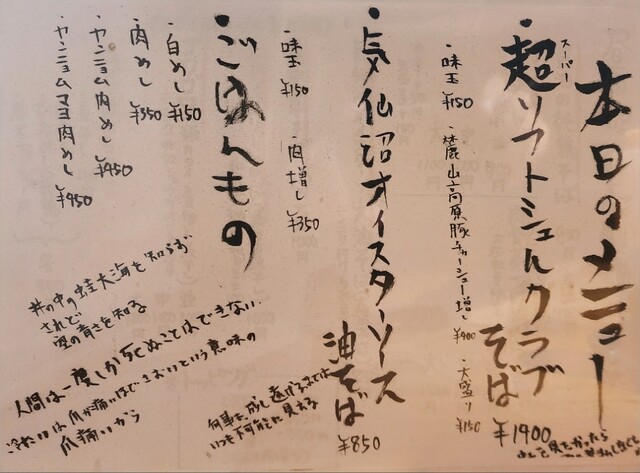 本日のメニュー
・超ソフトシェルクラブそば ¥1400
スーパー
・味玉 ¥150 ・麓山高原豚チャーシュー増し ¥400 ・大盛り ¥150
・気仙沼オイスターソース油そば ¥850
・味玉 ¥150 ・肉増し ¥350
・ごはんもの
・白めし ¥150
・肉めし ¥350
・ヤンニョム肉めし ¥450
・ヤンニョムマヨ肉めし ¥450
井の中の蛙大海を知らず
されど
空の青さを知る
人間は一度しか死ぬことはできない
という意味の
爪痛いから
何事も成し遂げるまでは
いつも不可能に見える